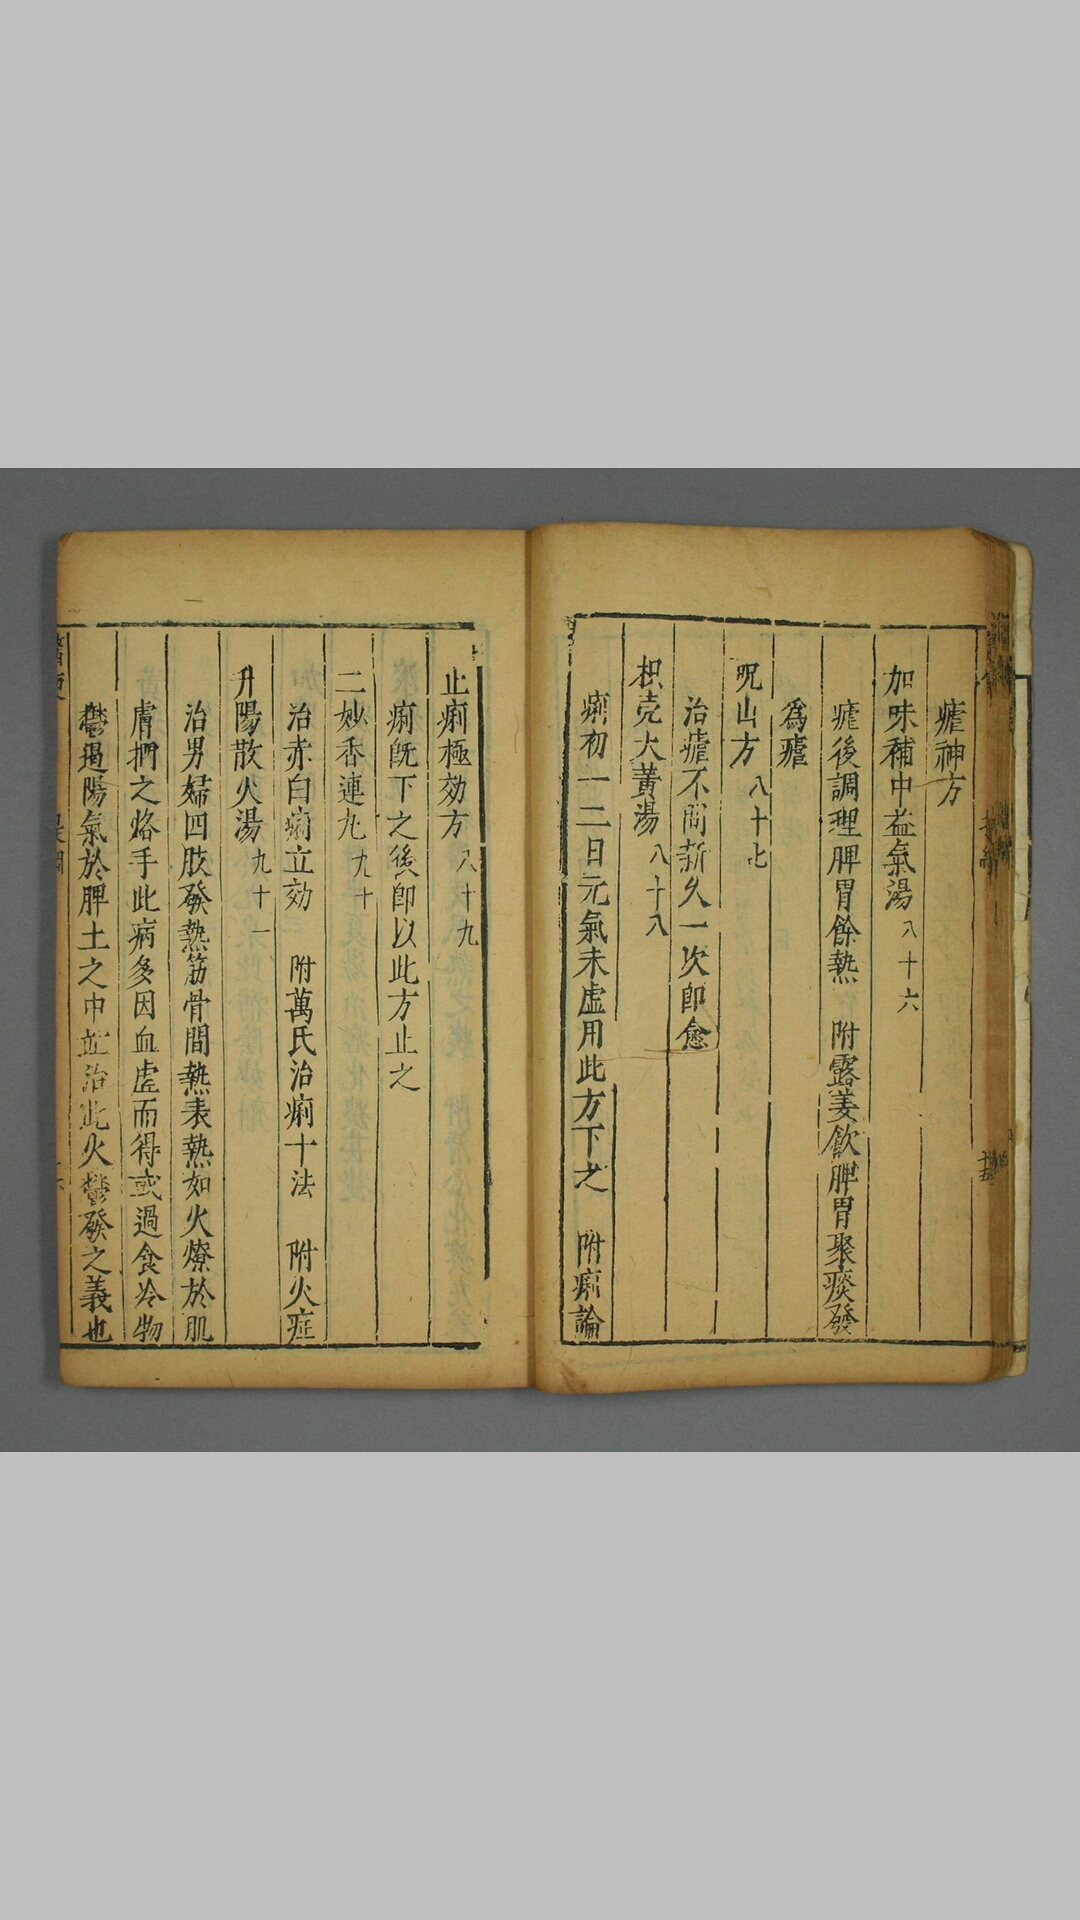 瘧神方
加味補中益氣湯 八十六
瘧後調理脾胃餘熱 附露姜飲脾胃聚痰發
為瘧
呪山方 八十七
治瘧不問新久一次即愈
枳壳大黃湯 八十八
痢初一二日元氣未虛用此方下之 附痢論
止痢極効方 八十九
痢既下之後即以此方止之
二妙香連丸 九十
治赤白痢立効 附萬氏治痢十法 附火症
升陽散火湯 九十一
治男婦四肢發熱筋骨間熱表熱如火燎於肌
膚捫之烙手此病多因血虛而得或過食冷物
鬱遏陽氣於脾土之中並治此火鬱發之義也